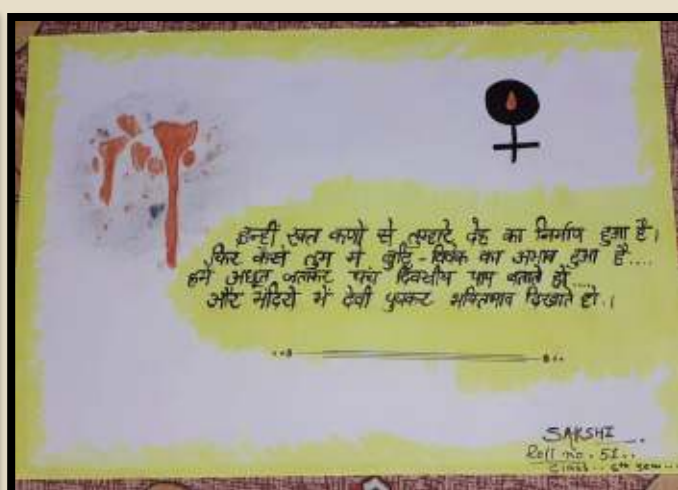 इन्ही रक्त कणो से तुम्हारे देह का निर्माण हुआ है।
फिर कैसे तुम मे बुद्धि-विवेक का अभाव हुआ है....
हमे अछूत जताकर पंच दिवसीय पाप बताते हो....
और मंदिरो में देवी पुजकर भक्तिभाव दिखाते हो।
SAKSHI
Roll no. 51..
Class..